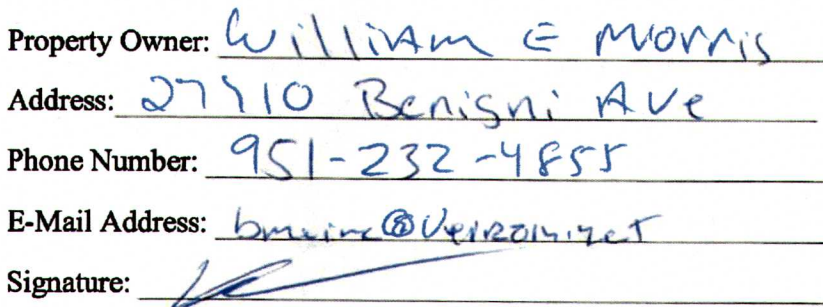 Property Owner: William E Morris
Address: 27710 Benigni Ave
Phone Number: 951-232-4855
E-Mail Address:
Signature: